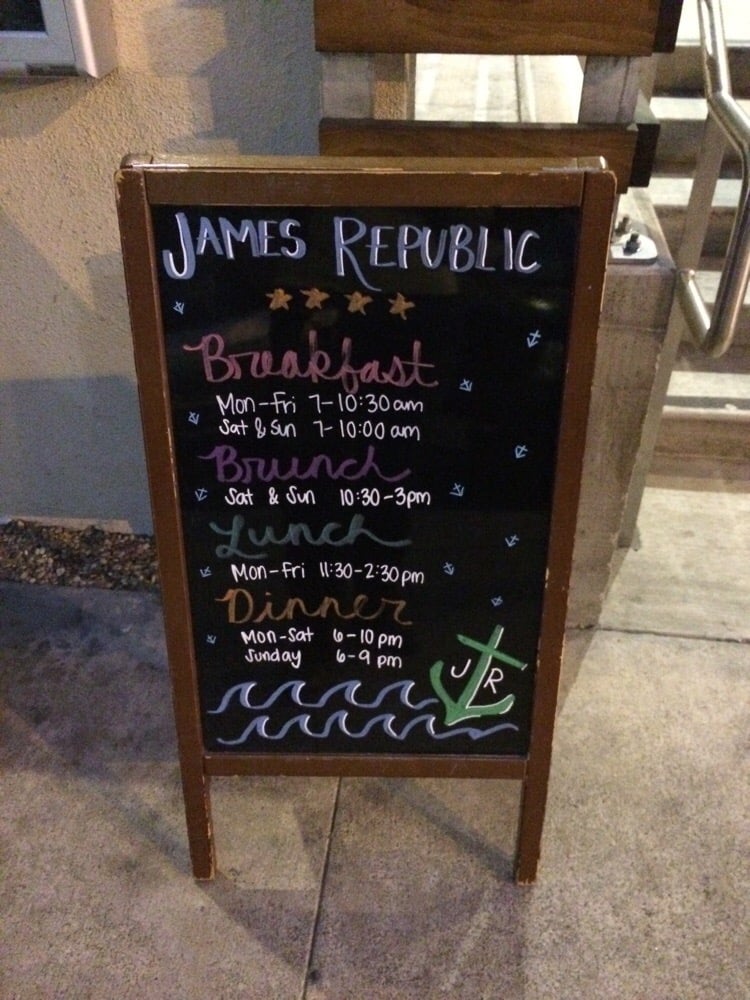 JAMES REPUBLIC
Breakfast
Mon-Fri 7-10:30am
Sat & Sun 7-10:00 am
Brunch
Sat & Sun 10:30-3pm
Lunch
Mon-Fri 11:30-2:30pm
Dinner
Mon-Sat 6-10 pm
Sunday 6-9 pm
JR